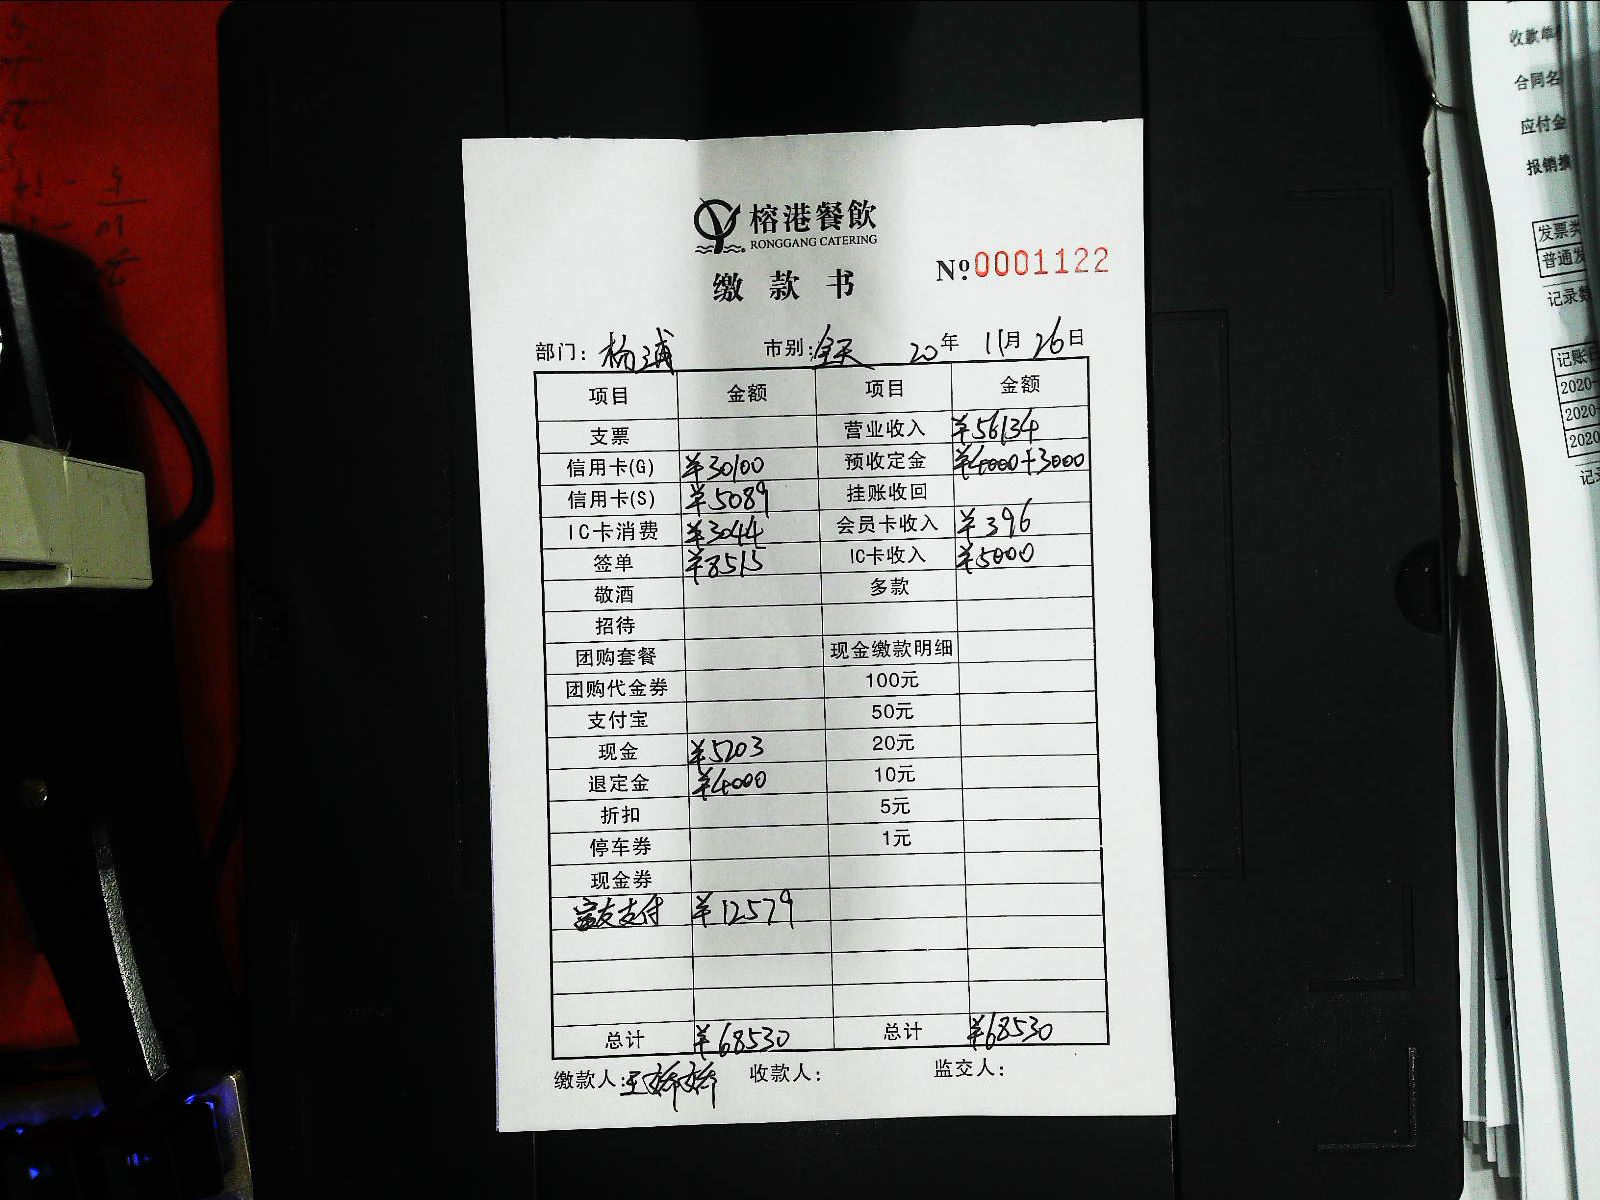 榕港餐飲
RONGGANG CATERING
缴款书
Nº0001122
部门：杨浦 市别：全天 20年 11月 26日
项目 金额 项目 金额
支票 营业收入 ¥56134
信用卡(G) ¥30100 预收定金 ¥4000+3000
信用卡(S) ¥5089 挂账收回
IC卡消费 ¥3044 会员卡收入 ¥396
签单 ¥8515 IC卡收入 ¥5000
敬酒 多款
招待
团购套餐 现金缴款明细
团购代金券 100元
支付宝 50元
现金 ¥5203 20元
退定金 ¥4000 10元
折扣 5元
停车券 1元
现金券
支付 ¥12579
总计 ¥68530 总计 ¥68530
缴款人：王婷婷 收款人： 监交人：
收款单
合同名
应付金
报销
发票类
普通发
记录数
记账日
2020-
2020-
2020